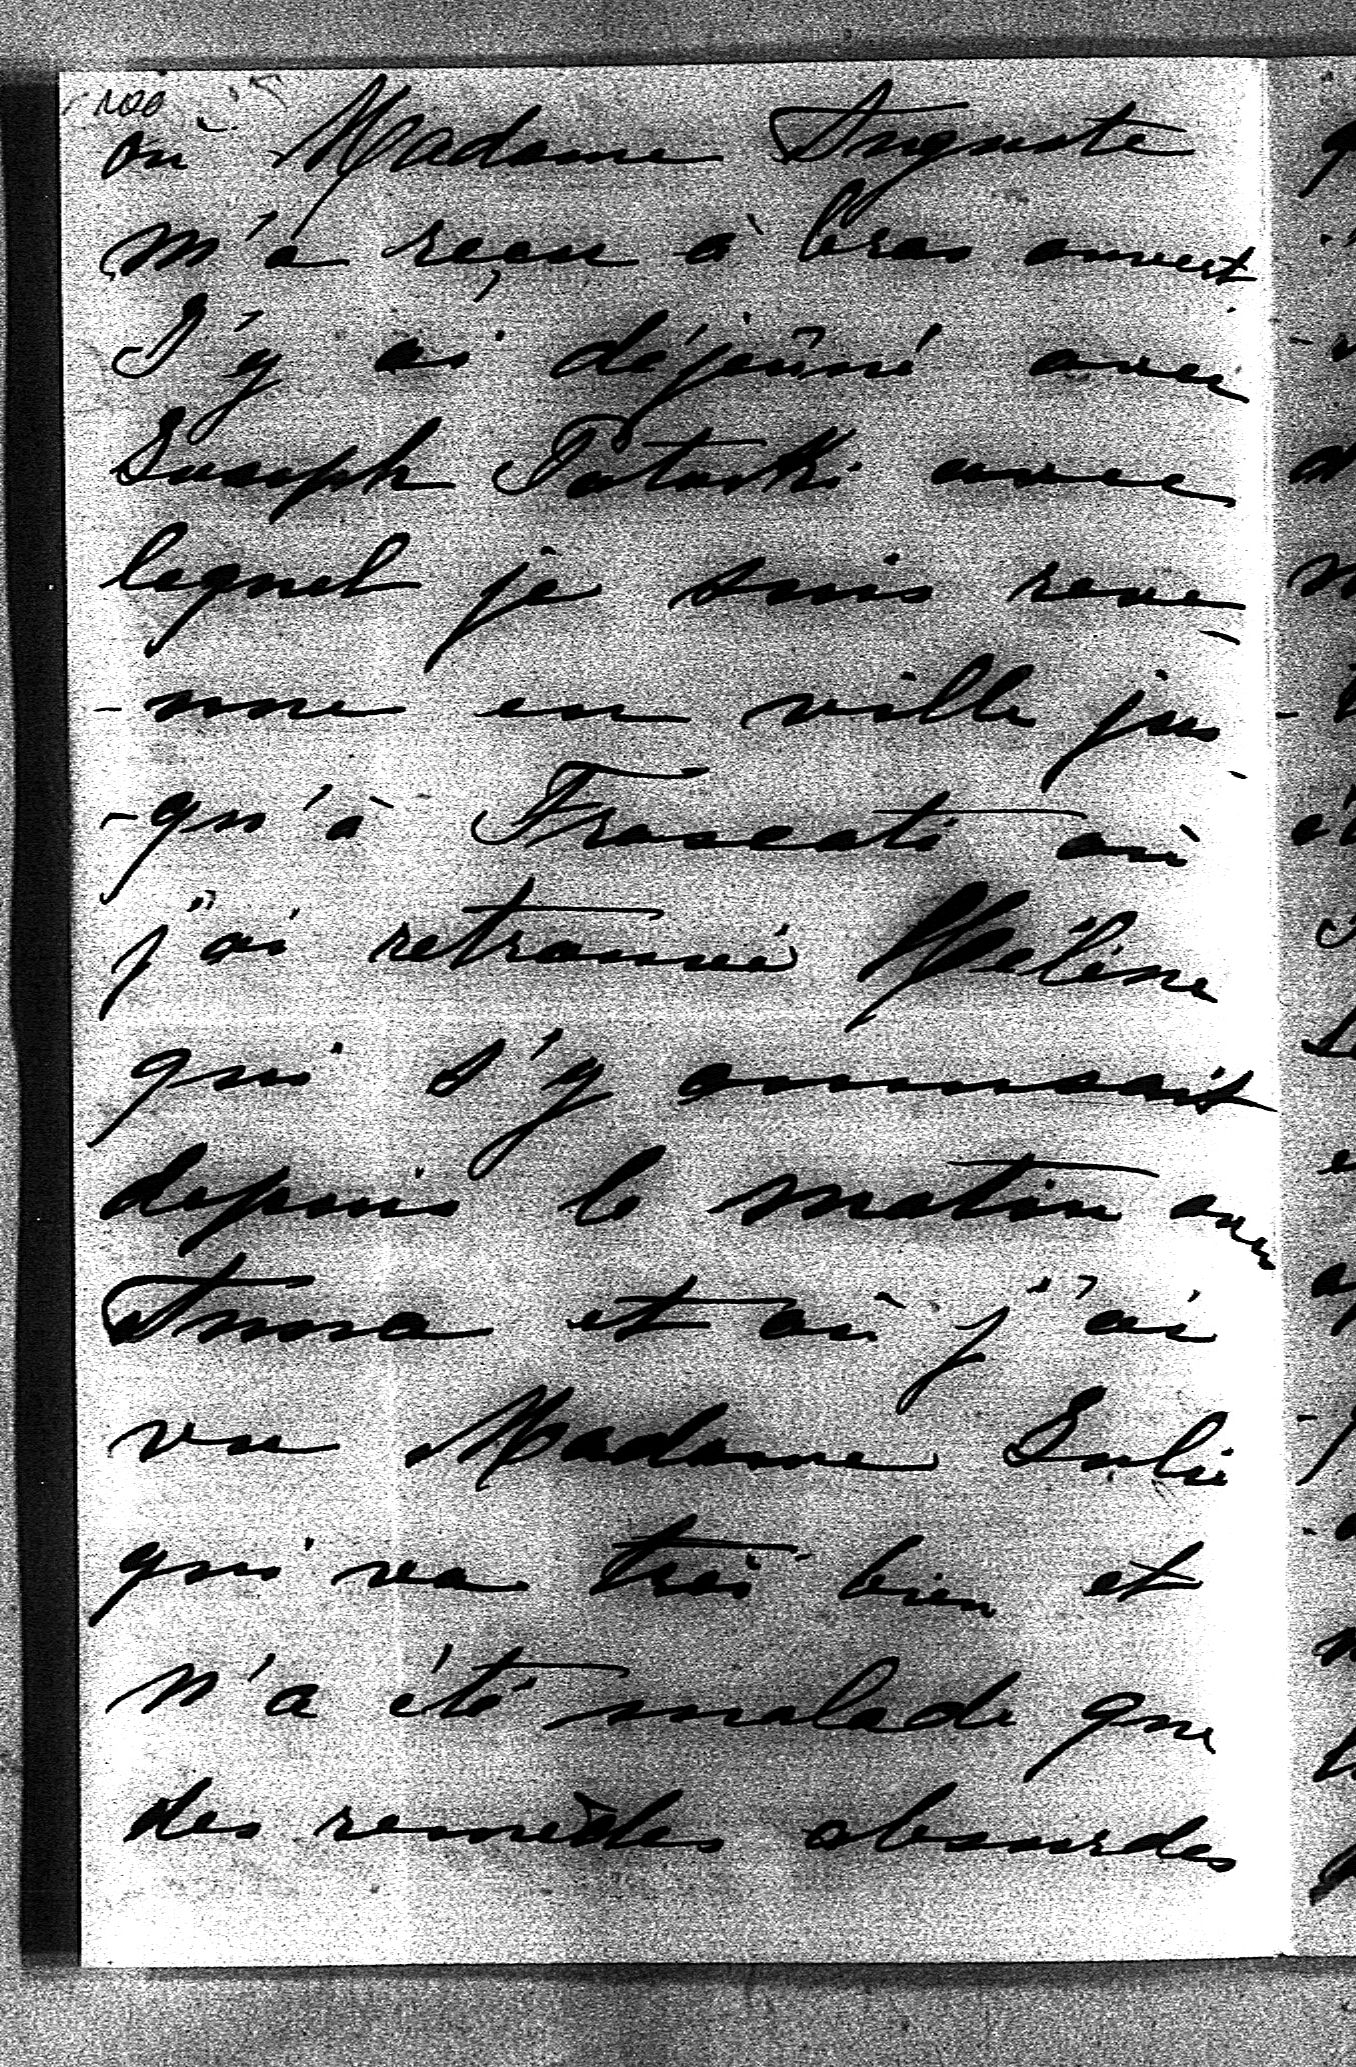 100
où Madame Auguste
m'a reçu à bras ouvert
J'y ai déjeûné avec
Joseph Potocki avec
lequel je suis reve
-nue en ville jus-
-qu'à Frascati où
j'ai retrouvé Hélène
qui s'y amusait
depuis le matin avec
Anna et où j'ai
vu Madame Julie
qui va très bien et
n'a été malade que
des remèdes absurdes